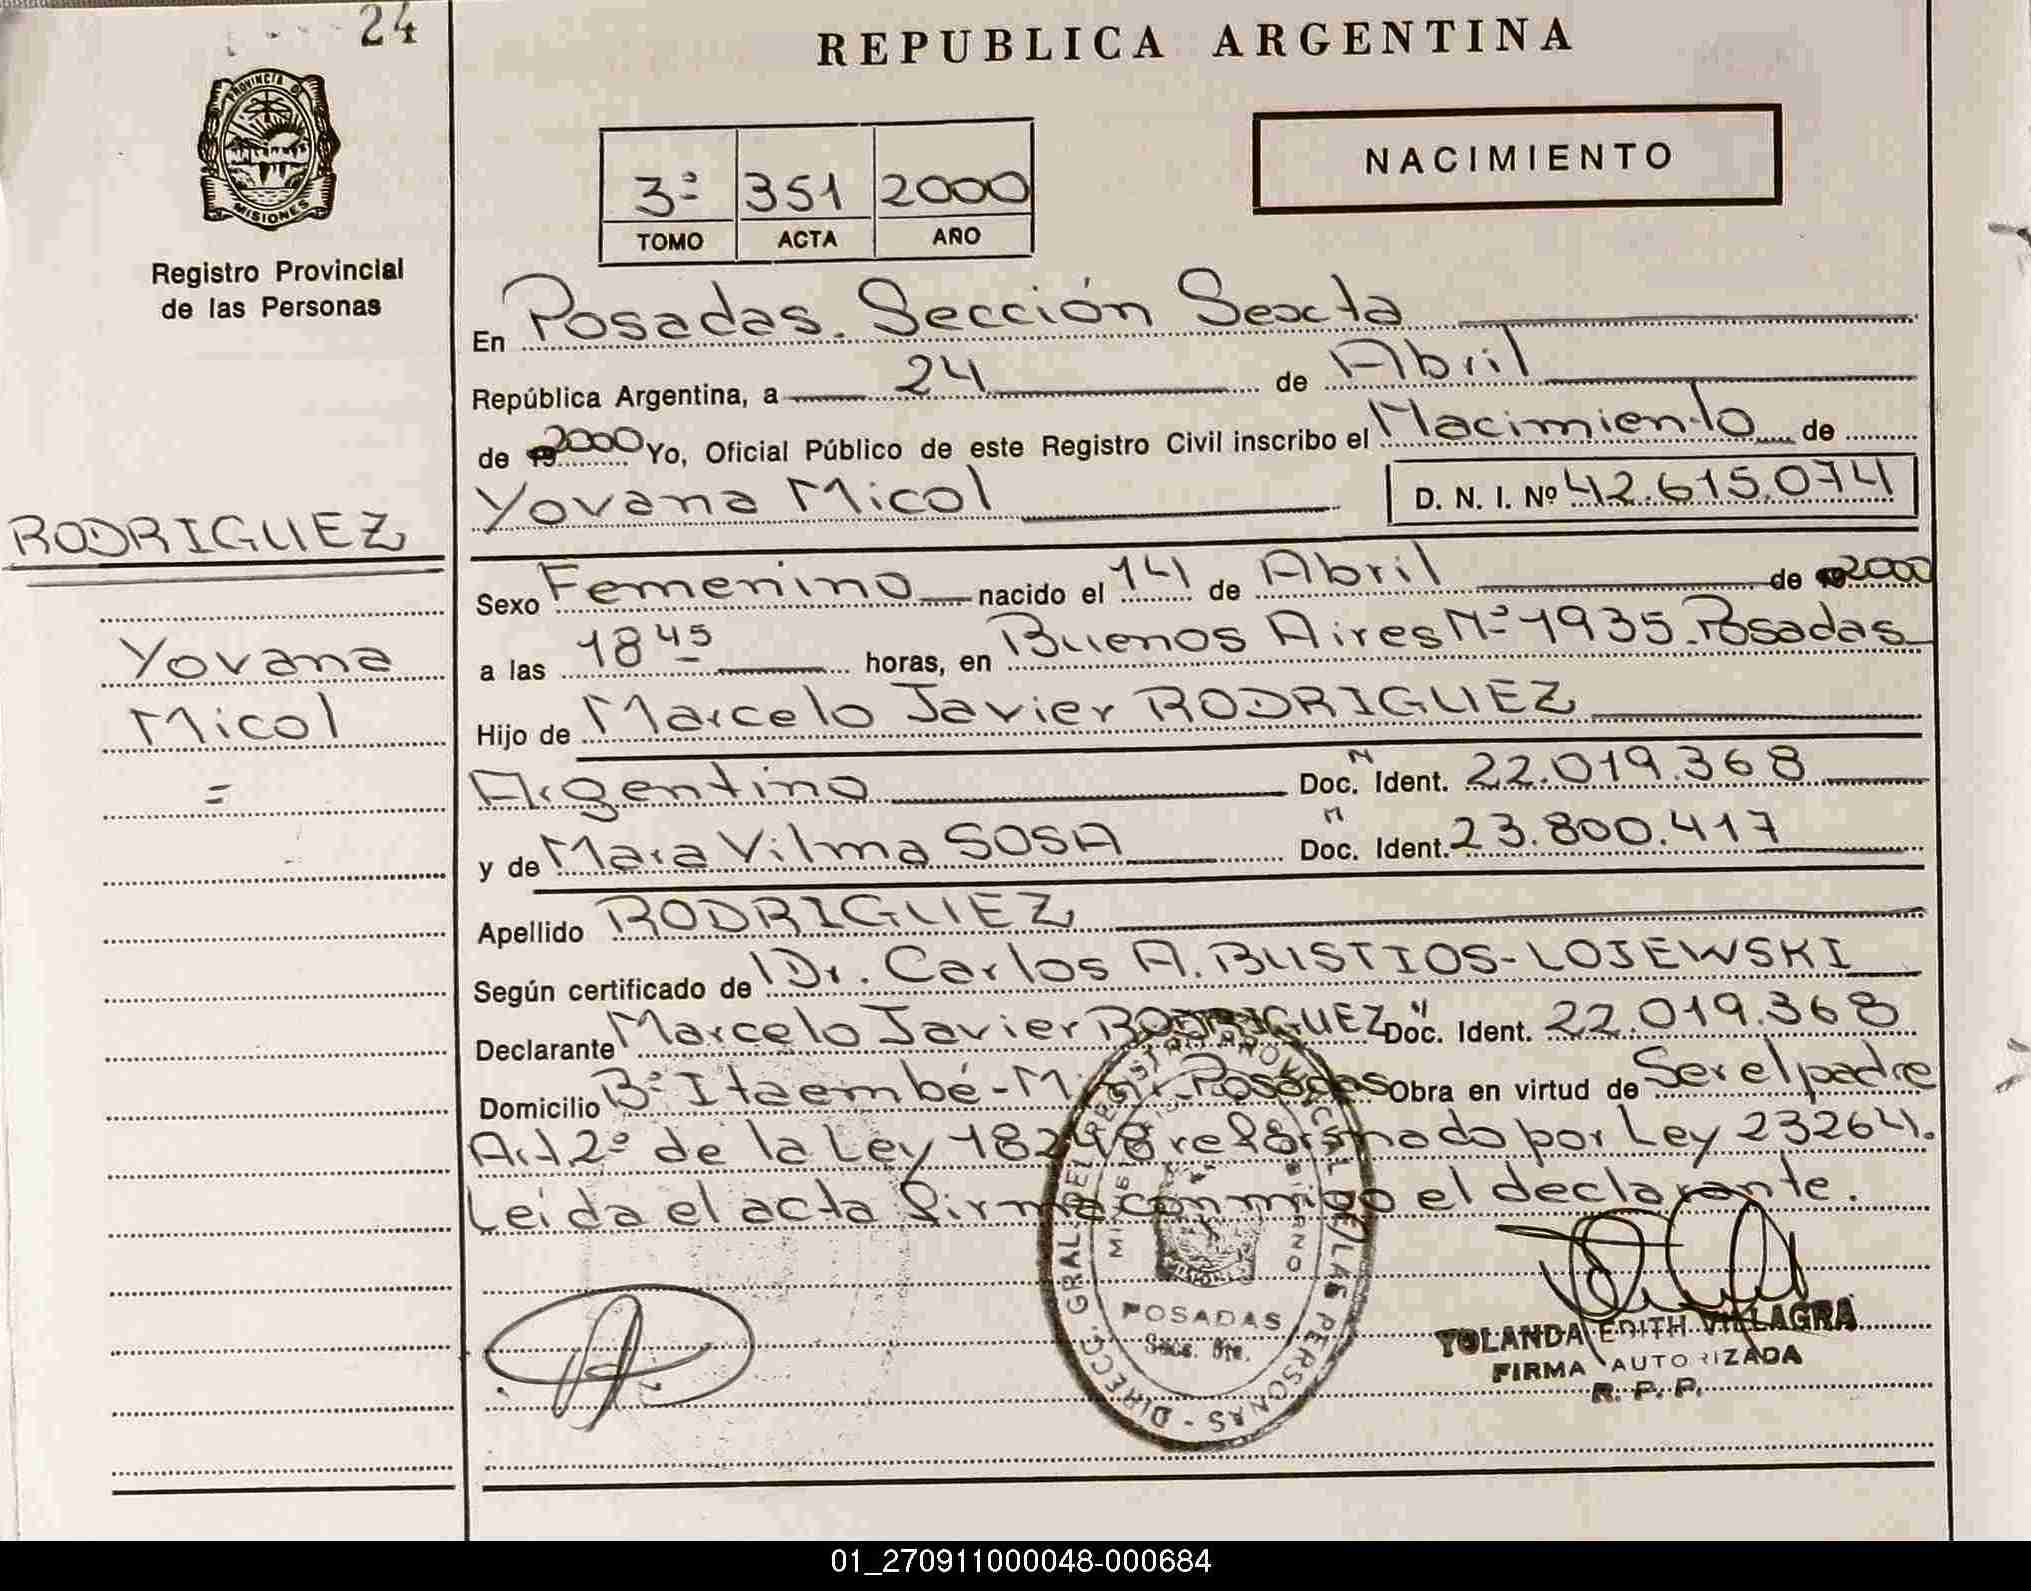 24
PROVINCIA DE
MISIONES
Registro Provincial
de las Personas
RODRIGUEZ
Yovana
Micol
=
REPUBLICA ARGENTINA
3º 351 2000
TOMO ACTA AÑO
NACIMIENTO
En Posadas. Sección Sexta
República Argentina, a 24 de Abril
de 2000 Yo, Oficial Público de este Registro Civil inscribo el Nacimiento de
Yovana Micol D. N. I. Nº 42.615.074
Sexo Femenino nacido el 14 de Abril de 2000
a las 18 45 horas, en Buenos Aires Nº 1935. Posadas
Hijo de Marcelo Javier RODRIGUEZ
Argentino Doc. N Ident. 22.019.368
y de Mara Vilma SOSA Doc. N Ident. 23.800.417
Apellido RODRIGUEZ
Según certificado de Dr. Carlos A. BUSTIOS-LOJEWSKI
Declarante Marcelo Javier RODRIGUEZ Doc. N Ident. 22.019.368
Domicilio Bº Itaembé-Miní Posadas Obra en virtud de Ser el padre
Art 2º de la Ley 18248 reformado por Ley 23264.
Leida el acta firma conmigo el declarante.
DIRECC. GRAL. DEL REGISTRO PROVINCIAL DE LAS PERSONAS -
POSADAS
YOLANDA EDITH VILLAGRA
FIRMA AUTORIZADA
R. P. P.
01_270911000048-000684